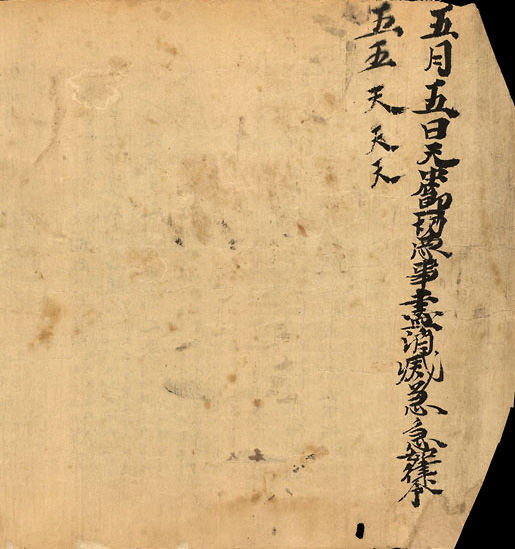 五月五日天中節一切惡事盡消滅急急如律令
五五天天天